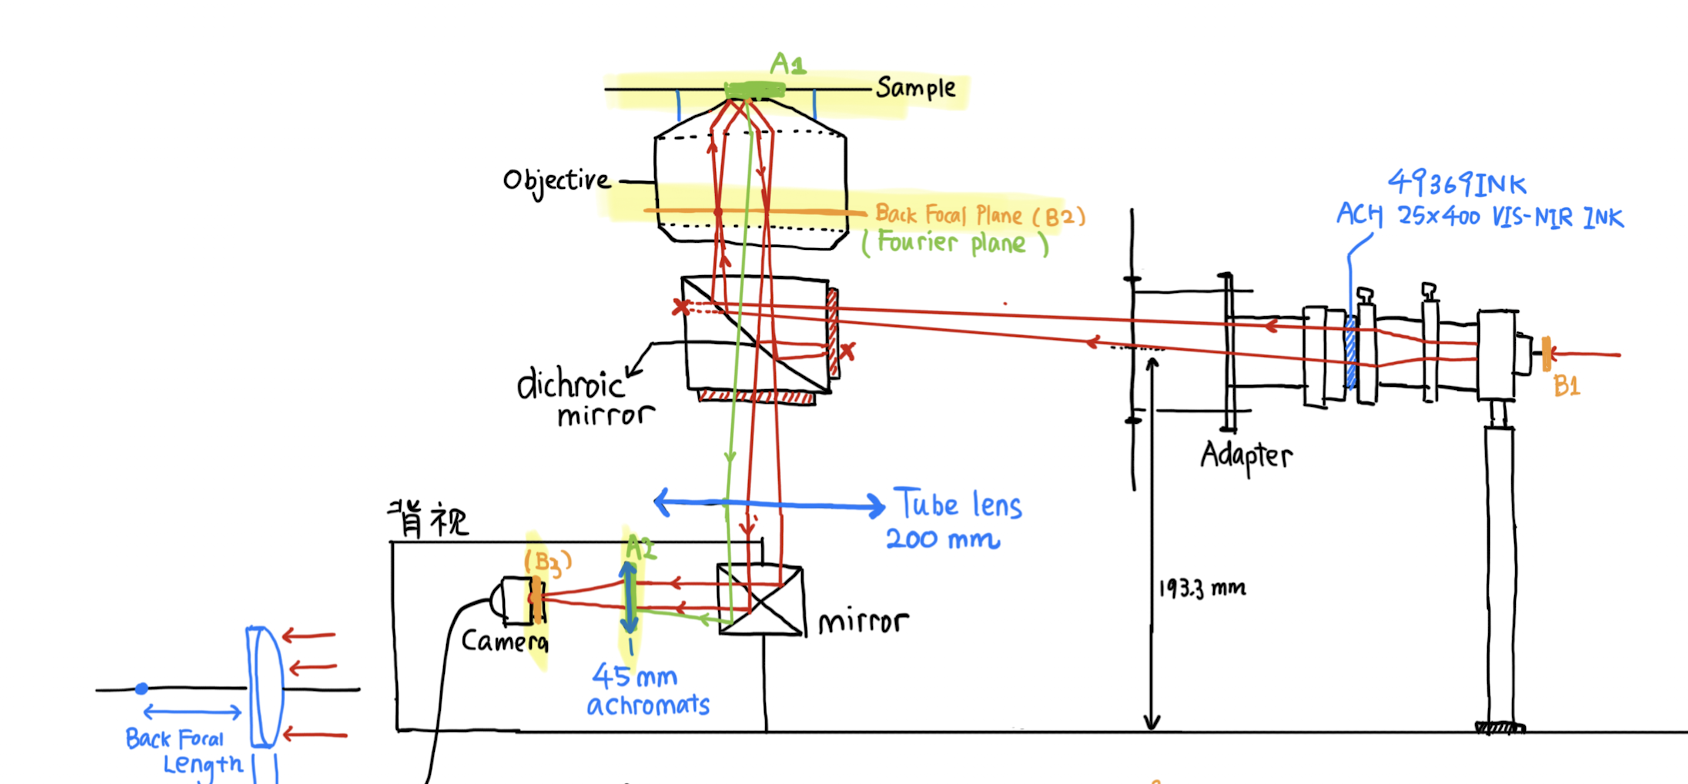 A1
Sample
Objective
Back Focal Plane (B2)
(Fourier plane)
49369INK
ACH 25x400 VIS-NIR INK
dichroic
mirror
B1
Adapter
Tube lens
200 mm
背视
(B3)
A2
193.3 mm
mirror
Camera
45mm
achromats
Back Focal
Length